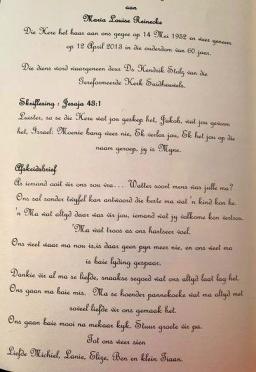 aan
Maria Louise Reinecke
Die Here het haar aan ons gegee op 14 Mei 1952 en weer geneem
op 12 April 2013 in die ouderdom van 60 jare.
Die diens word waargeneem deur Ds Hendrik Stolz van die
Gereformeerde Kerk Suidheuwels.
Skriflesing : Jesaja 43:1
Luister, so sê die Here wat jou geskep het, Jakob, wat jou gevorm
het, Israel: Moenie bang wees nie, Ek verlos jou, Ek het jou op die
naam geroep, jy is Myne.
Afskeidsbrief
As iemand ooit vir ons sou vra... Watter soort mens was julle ma?
Ons sal sonder twyfel kan antwoord die beste ma wat 'n kind kon hê.
'n Ma wat altyd daar was vir jou, iemand wat jy volkome kon vertrou.
'Ma wat troos as ons hartseer voel.
Ons weet waar ma nou is,is daar geen pyn meer nie, en ons weet ma
is baie lyding gespaar.
Dankie vir al ma se liefde, snaakse segoed wat ons altyd laat lag het.
Ons gaan ma baie mis. Ma se hoender pannekoeke wat ma altyd met
soveel liefde vir ons gemaak het.
Ons gaan baie mooi na mekaar kyk. Stuur groete vir pa.
Tot ons weer sien
Liefde Michiel, Lanie, Elize, Ben en klein Tiaan.